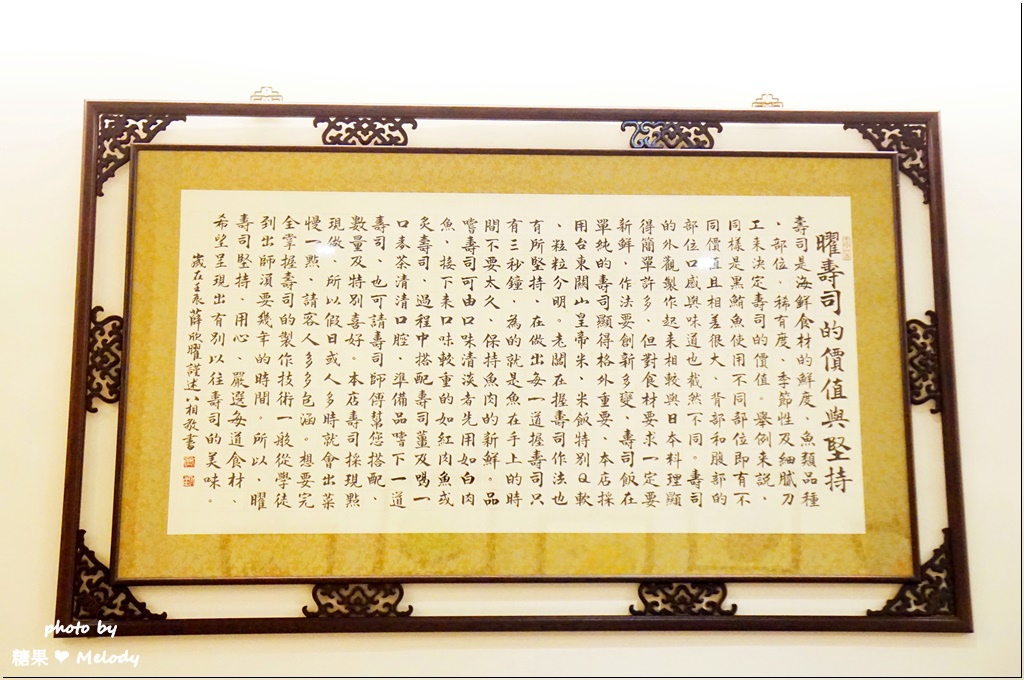 曜壽司的價值與堅持
壽司是海鮮食材的鮮度、魚類品種
、部位、稀有度、季節性及細膩刀
工來決定壽司的價值。舉例來説，
同樣是黑鮪魚使用不同部位即有不
同價值且相差很大，背部和腹部的
部位口感與味道也截然不同。壽司
的外觀製作起來相較與日本料理顯
得簡單許多，但對食材要求一定要
新鮮，作法要創新多變，壽司飯在
單純的壽司顯得格外重要、本店採
用台東關山皇帝米，米飯特別Q軟
、粒粒分明。老闆在握壽司作法也
有所堅持，在做出每一道握壽司只
有三秒鐘，為的就是魚在手上的時
間不要太久，保持魚肉的新鮮。品
嚐壽司可由口味清淡者先用如白肉
魚，接下來口味較重的如紅肉魚或
炙壽司，過程中搭配壽司薑及喝一
口麥茶清清口腔，準備品嚐下一道
壽司，也可請壽司師傅幫您搭配，
數量及特別喜好。本店壽司採現點
現做，所以假日或人多時就會出菜
慢一點，請客人多多包涵。想要完
全掌握壽司的製作技術一般從學徒
到出師須要幾年的時間。所以，曜
壽司堅持、用心、嚴選每道食材、
希望呈現出有別以往壽司的美味。
歲在壬辰薛欣曜謹述八相敬書
photo by
糖果 ❤ Melody